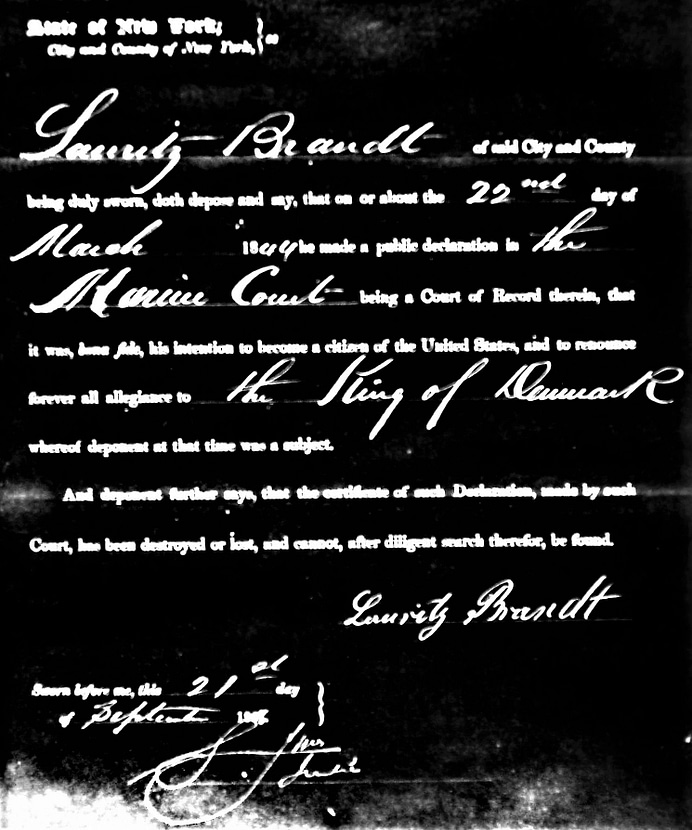 State of New York,
City and County of New York, } ss
Lauritz Brandt of said City and County
being duly sworn, doth depose and say, that on or about the 22nd day of
March 1844 he made a public declaration in the
Marine Court being a Court of Record therein, that
it was, bona fide, his intention to become a citizen of the United States, and to renounce
forever all allegiance to the King of Denmark
whereof deponent at that time was a subject.
And deponent further says, that the certificate of such Declaration, made by such
Court, has been destroyed or lost, and cannot, after diligent search therefor, be found.
Lauritz Brandt
Sworn before me, this 21st day
of September }